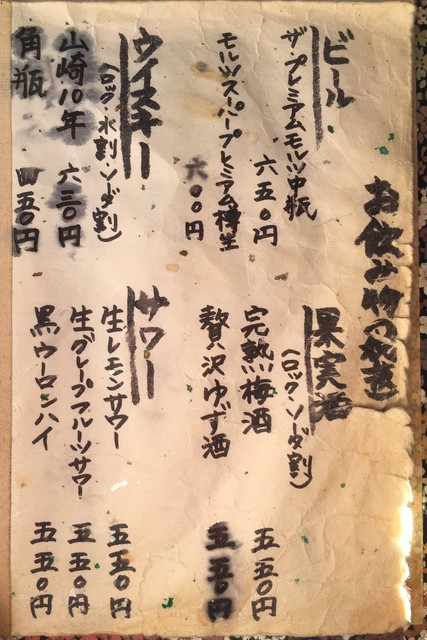 お飲み物の状態
ビール
ザ・プレミアムモルツ中瓶
六五〇円
モルツスーパープレミアム樽生
六〇〇円
ウイスキー
(ロック・水割・ソーダ割)
山崎10年
六三〇円
角瓶
四五〇円
果実酒
(ロック・ソーダ割)
完熟梅酒
五五〇円
贅沢ゆず酒
五五〇円
サワー
生レモンサワー
五五〇円
生グレープフルーツサワー
五五〇円
黒ウーロンハイ
五五〇円